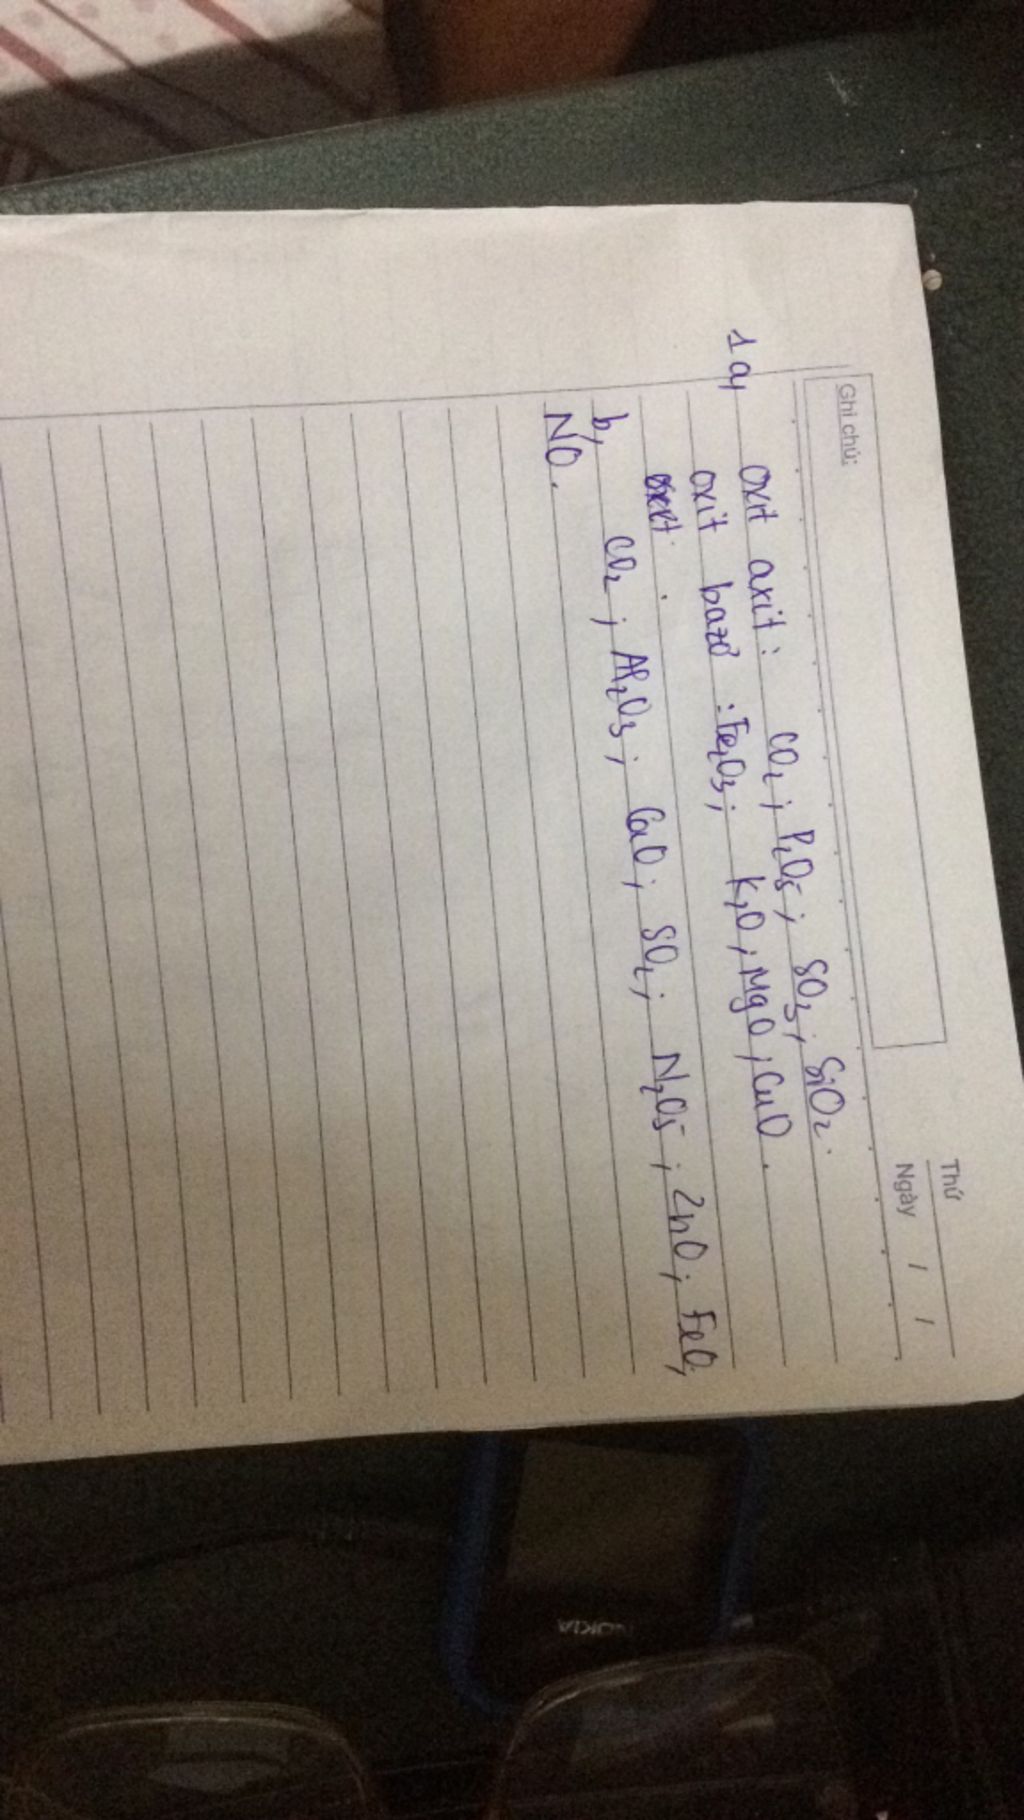 Thứ
Ngày / /
Ghi chú:
1a, oxit axit: CO2; P2O5; SO3; SiO2.
oxit bazơ: Fe2O3; K2O; MgO; CuO.
b, CO2; Al2O3; CaO; SO2; N2O5; ZnO; FeO,
NO.
NOKIA